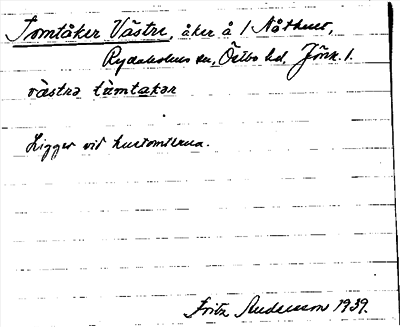 Tomtåker Västre, åker å 1 Nåthult,
Rydaholms sn, Östbo hd, Jönk. l.
västrə tàmtakər
Ligger vid hustomterna.
Fritz Andersson 1939.